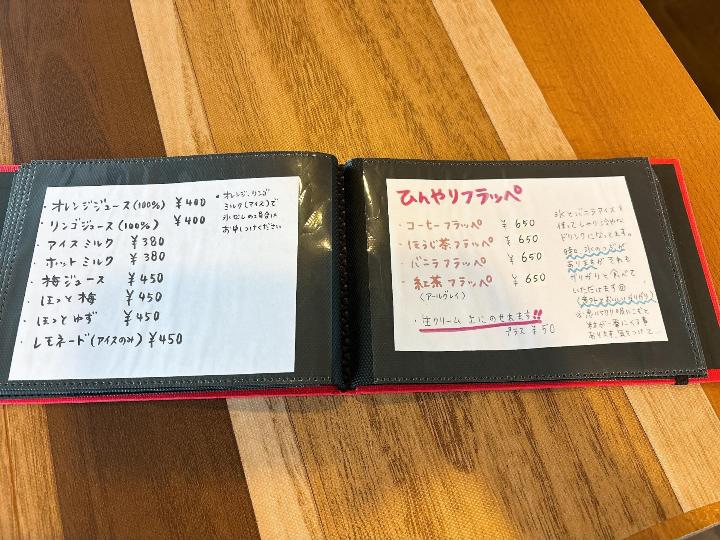 ・オレンジジュース(100%) ¥400
・リンゴジュース(100%) ¥400
・アイスミルク ¥380
・ホットミルク ¥380
・梅ジュース ¥450
・ほっと梅 ¥450
・ほっとゆず ¥450
・レモネード(アイスのみ) ¥450
・オレンジ、リンゴ
ミルク(アイス)で
氷なしの場合は
お申しつけください
ひんやりフラッペ
・コーヒーフラッペ ¥650
・ほうじ茶フラッペ ¥650
・バニラフラッペ ¥650
・紅茶フラッペ ¥650
(アールグレイ)
・生クリーム 上にのせれます!!
プラス ¥50
氷とバニラアイスを
使ってしゃりっと冷めな
ドリンクになってます。
時々氷のつぶが
ありますが それも
ガリガリと食べて
いただけます
(意外とおいしいガリガリ)